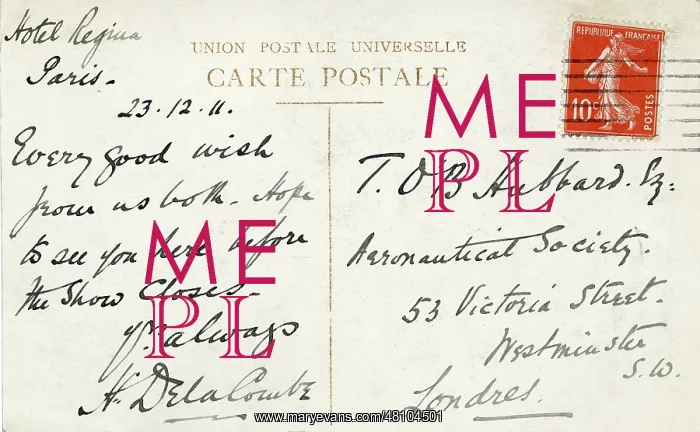 Hotel Regina
Paris-
23.12.11.
Every good wish
from us both. Hope
to see you here before
the Show Closes-
Yrs always
H. DelaCombe
UNION POSTALE UNIVERSELLE
CARTE POSTALE
REPUBLIQUE FRANÇAISE
10c
POSTES
T. O B Hubbard. Esq:
Aeronautical Society.
53 Victoria Street.
Westminster
S.W.
Londres.
ME
PL
ME
PL
www.maryevans.com/48104501